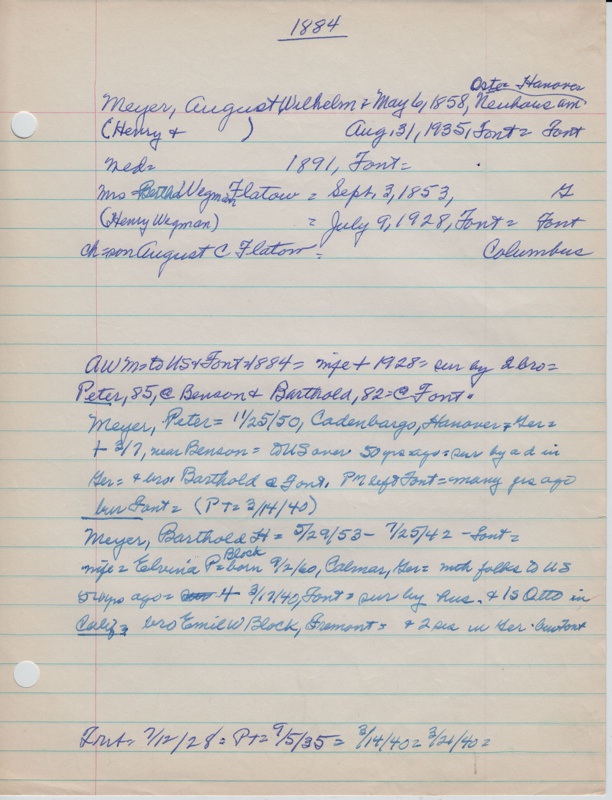 1884
Oste Hanover
Meyer, August Wilhelm = May 6, 1858, Neuhaus am
(Henry + ) Aug, 31, 1935, Font = Font
Med = 1891, Font =
Mrs = Wegman Flatow = Sept. 3, 1853, G
(Henry Wegman) = July 9, 1928, Font = Font
ch = son August C Flatow = Columbus
AWm = to US & Font = 1884 = wife + 1928 = sur by 2 bro =
Peter, 85, @ Benson & Barthold, 82 = @ Font.
Meyer, Peter = 11/25/50, Cadenbargo, Hanover, Ger =
+ 3/7, near Benson = to US over 50 yrs ago = sur by a d in
Ger = & bro. Barthold @ Font. PM left Font = many yrs ago
bur Font = (PT = 3/14/40)
Meyer, Barthold H = 5/29/53 - 7/25/42 - Font =
Block
wife = Elvina P = born 9/2/60, Calmar, Ger = with folks to US
yrs ago = + 3/17/40, Font = sur by hus. & 1s Otto in
Calif, bro Emil W Block, Fremont = & 2 sis in Ger. Bur Font
Tnt = 7/12/28 = PT = 9/5/35 = 3/14/40 = 3/21/40 =